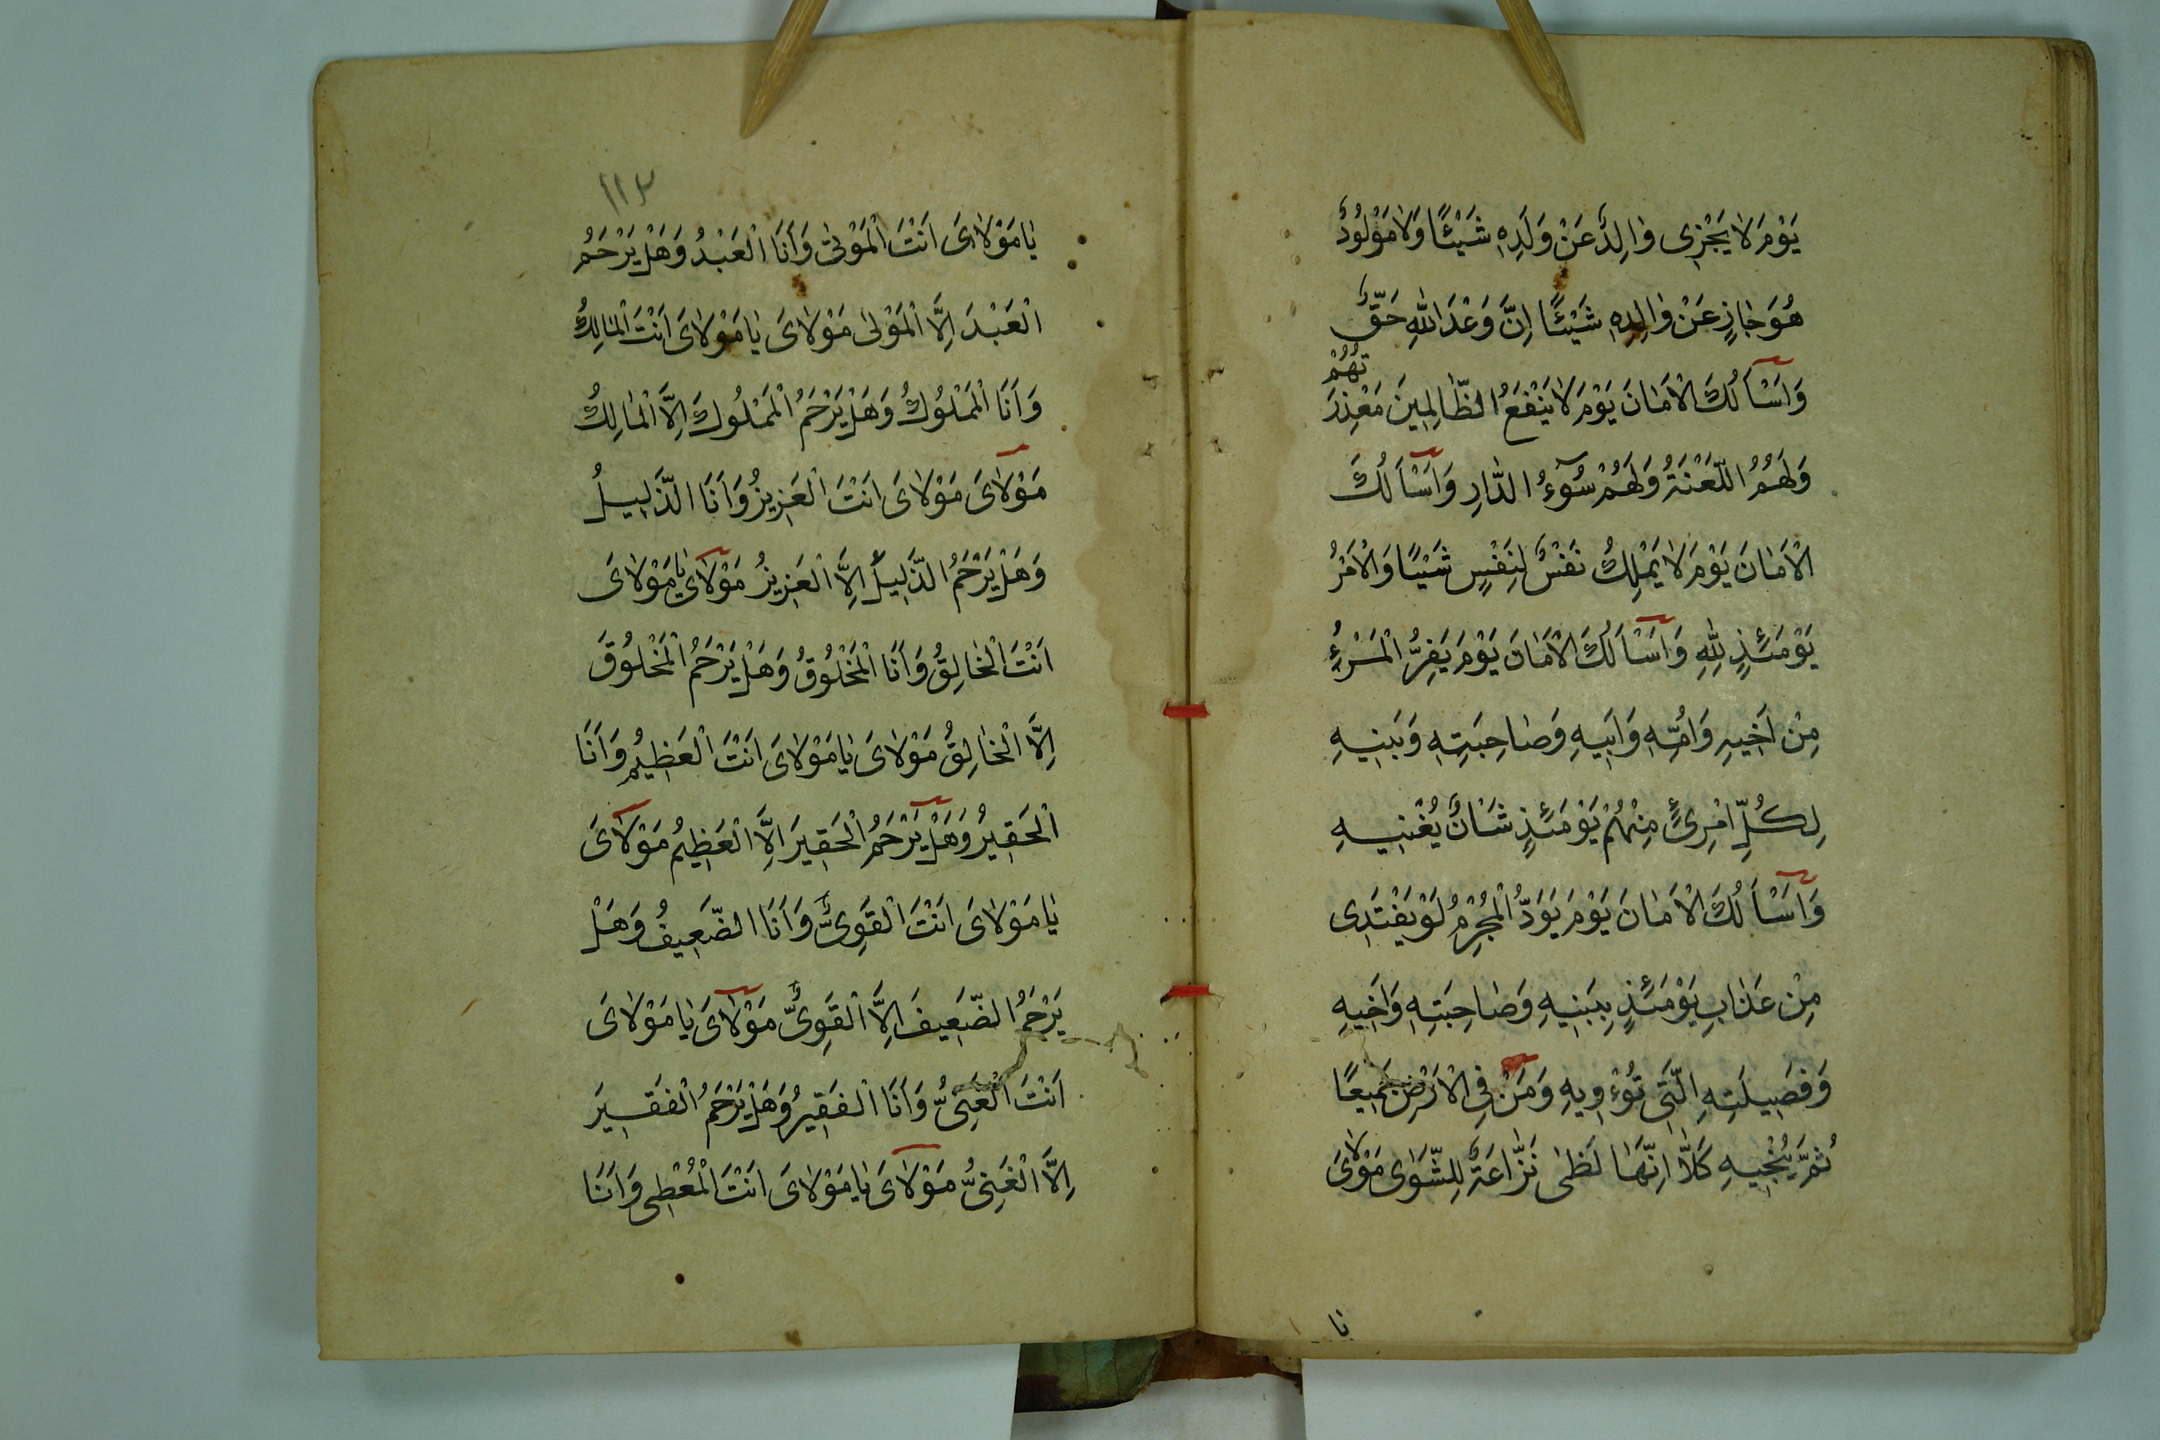 يَوْمَ لَا يَجْزِى وَالِدٌ عَنْ وَلَدِهِ شَيْئًا وَلَا مَوْلُودٌ
هُوَ جَازٍ عَنْ وَالِدِهِ شَيْئًا اِنَّ وَعْدَ اللهِ حَقٌّ
وَاَسْاَلُكَ الْاَمَانَ يَوْمَ لَا يَنْفَعُ الظَّالِمِينَ مَعْذِرَتُهُمْ
وَلَهُمُ اللَّعْنَةُ وَلَهُمْ سُوۤءُ الدَّارِ وَاَسْاَلُكَ
الْاَمَانَ يَوْمَ لَا يَمْلِكُ نَفْسٌ لِنَفْسٍ شَيْئًا وَالْاَمْرُ
يَوْمَئِذٍ لِلّٰهِ وَاَسْاَلُكَ الْاَمَانَ يَوْمَ يَفِرُّ الْمَرْءُ
مِنْ اَخِيهِ وَاُمِّهِ وَاَبِيهِ وَصَاحِبَتِهِ وَبَنِيهِ
لِكُلِّ امْرِئٍ مِنْهُمْ يَوْمَئِذٍ شَاْنٌ يُغْنِيهِ
وَاَسْاَلُكَ الْاَمَانَ يَوْمَ يَوَدُّ الْمُجْرِمُ لَوْ يَفْتَدِى
مِنْ عَذَابِ يَوْمَئِذٍ بِبَنِيهِ وَصَاحِبَتِهِ وَاَخِيهِ
وَفَصِيلَتِهِ الَّتِى تُؤْوِيهِ وَمَنْ فِى الْاَرْضِ جَمِيعًا
ثُمَّ يُنْجِيهِ كَلَّا اِنَّهَا لَظٰى نَزَّاعَةً لِلشَّوٰى مَوْلَاىَ
يا
١١٣
يَا مَوْلَاىَ اَنْتَ الْمَوْلٰى وَاَنَا الْعَبْدُ وَهَلْ يَرْحَمُ
الْعَبْدَ اِلَّا الْمَوْلٰى مَوْلَاىَ يَا مَوْلَاىَ اَنْتَ الْمَالِكُ
وَاَنَا الْمَمْلُوكُ وَهَلْ يَرْحَمُ الْمَمْلُوكَ اِلَّا الْمَالِكُ
مَوْلَاىَ مَوْلَاىَ اَنْتَ الْعَزِيزُ وَاَنَا الذَّلِيلُ
وَهَلْ يَرْحَمُ الذَّلِيلَ اِلَّا الْعَزِيزُ مَوْلَاىَ يَا مَوْلَاىَ
اَنْتَ الْخَالِقُ وَاَنَا الْمَخْلُوقُ وَهَلْ يَرْحَمُ الْمَخْلُوقَ
اِلَّا الْخَالِقُ مَوْلَاىَ يَا مَوْلَاىَ اَنْتَ الْعَظِيمُ وَاَنَا
الْحَقِيرُ وَهَلْ يَرْحَمُ الْحَقِيرَ اِلَّا الْعَظِيمُ مَوْلَاىَ
يَا مَوْلَاىَ اَنْتَ الْقَوِىُّ وَاَنَا الضَّعِيفُ وَهَلْ
يَرْحَمُ الضَّعِيفَ اِلَّا الْقَوِىُّ مَوْلَاىَ يَا مَوْلَاىَ
اَنْتَ الْغَنِىُّ وَاَنَا الْفَقِيرُ وَهَلْ يَرْحَمُ الْفَقِيرَ
اِلَّا الْغَنِىُّ مَوْلَاىَ يَا مَوْلَاىَ اَنْتَ الْمُعْطِى وَاَنَا